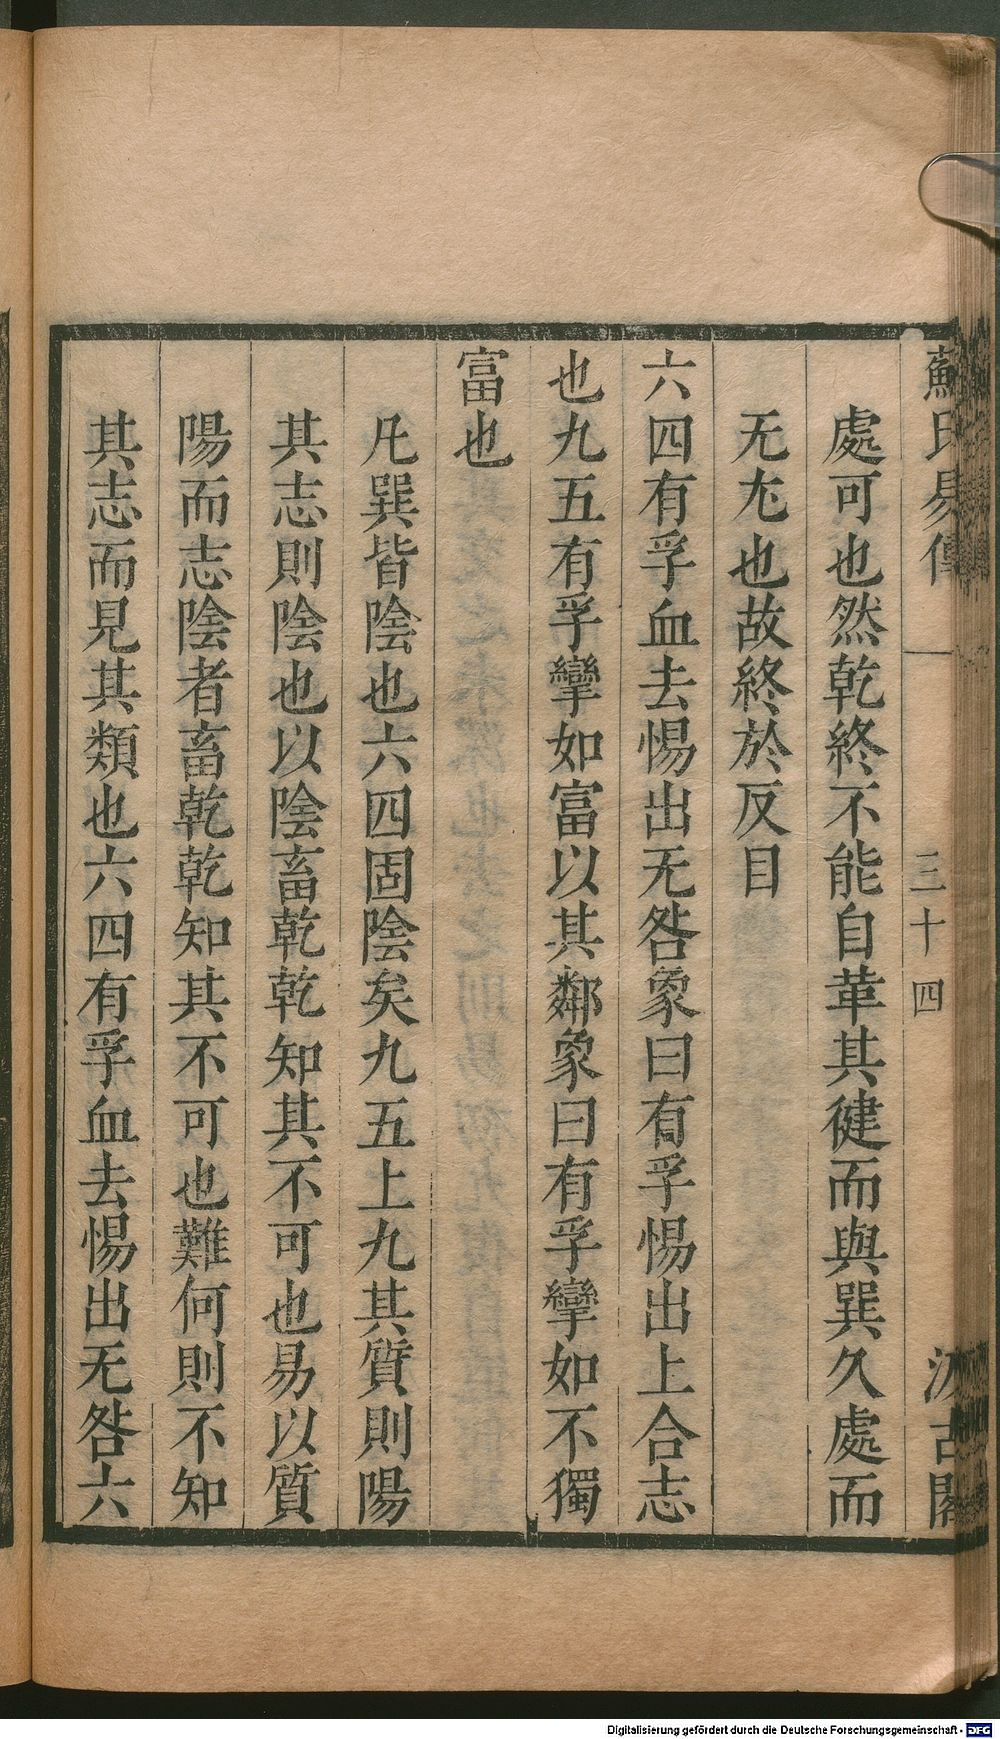 蘇氏易傳 一 三十四 汲古閣
處可也然乾終不能自革其健而與巽久處而
无尤也故終於反目
六四有孚血去惕出无咎象曰有孚惕出上合志
也九五有孚攣如富以其鄰象曰有孚攣如不獨
富也
凡巽皆陰也六四固陰矣九五上九其質則陽
其志則陰也以陰畜乾乾知其不可也易以質
陽而志陰者畜乾乾知其不可也難何則不知
其志而見其類也六四有孚血去惕出无咎六
Digitalisierung gefördert durch die Deutsche Forschungsgemeinschaft - DFG